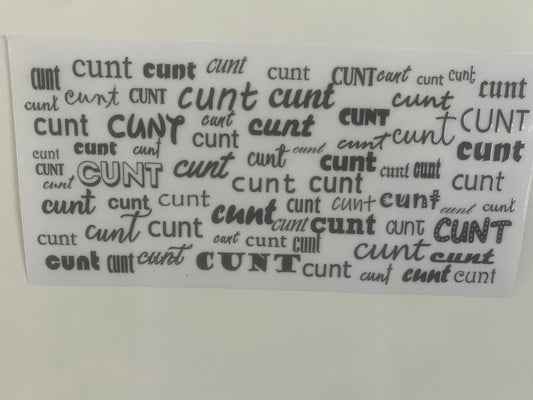 cunt cunt cunt cunt cunt CUNT cunt cunt cunt cunt
cunt cunt CUNT cunt cunt CUNT cunt CUNT
cunt CUNT cunt cunt cunt cunt cunt cunt
cunt cunt cunt cunt cunt cunt cunt
CUNT cunt CUNT cunt cunt cunt cunt cunt cunt
cunt cunt cunt cunt cunt cunt cunt cunt cunt
cunt cunt cunt cunt cunt cunt cunt cunt CUNT
cunt cunt cunt cunt cunt
cunt cunt cunt CUNT cunt cunt cunt cunt